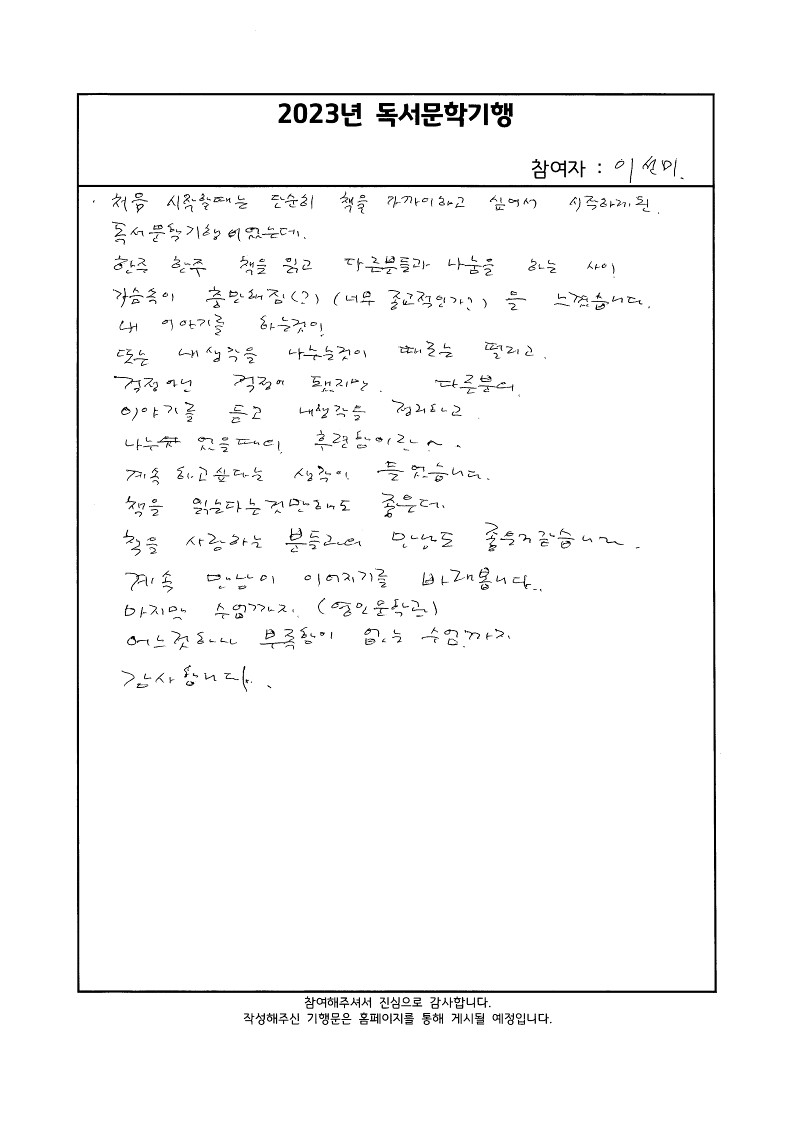 2023년 독서문학기행
참여자 : 이선미.
처음 시작할때는 단순히 책을 가까이하고 싶어서 시작하게된.
독서문학기행이었는데.
한주 한주 책을 읽고 다른분들과 나눔을 하는 사이
가슴속이 충만해짐(?) (너무 종교적인가?) 을 느꼈습니다.
내 이야기를 하는것이
또는 내생각을 나누는것이 때로는 떨리고.
걱정아닌 걱정이 됐지만. 다른분의
이야기를 듣고 내생각들 정리하고.
나누 었을때의 후련함이란~.
계속 하고싶다는 생각이 들었습니다.
책을 읽는다는것만해도 좋은데.
책을 사랑하는 분들과의 만남도 좋은거같습니다.
계속 만남이 이어지기를 바래봅니다..
마지막 수업까지. (영인문학관)
어느것하나 부족함이 없는 수업까지
감사합니다.
참여해주셔서 진심으로 감사합니다.
작성해주신 기행문은 홈페이지를 통해 게시될 예정입니다.